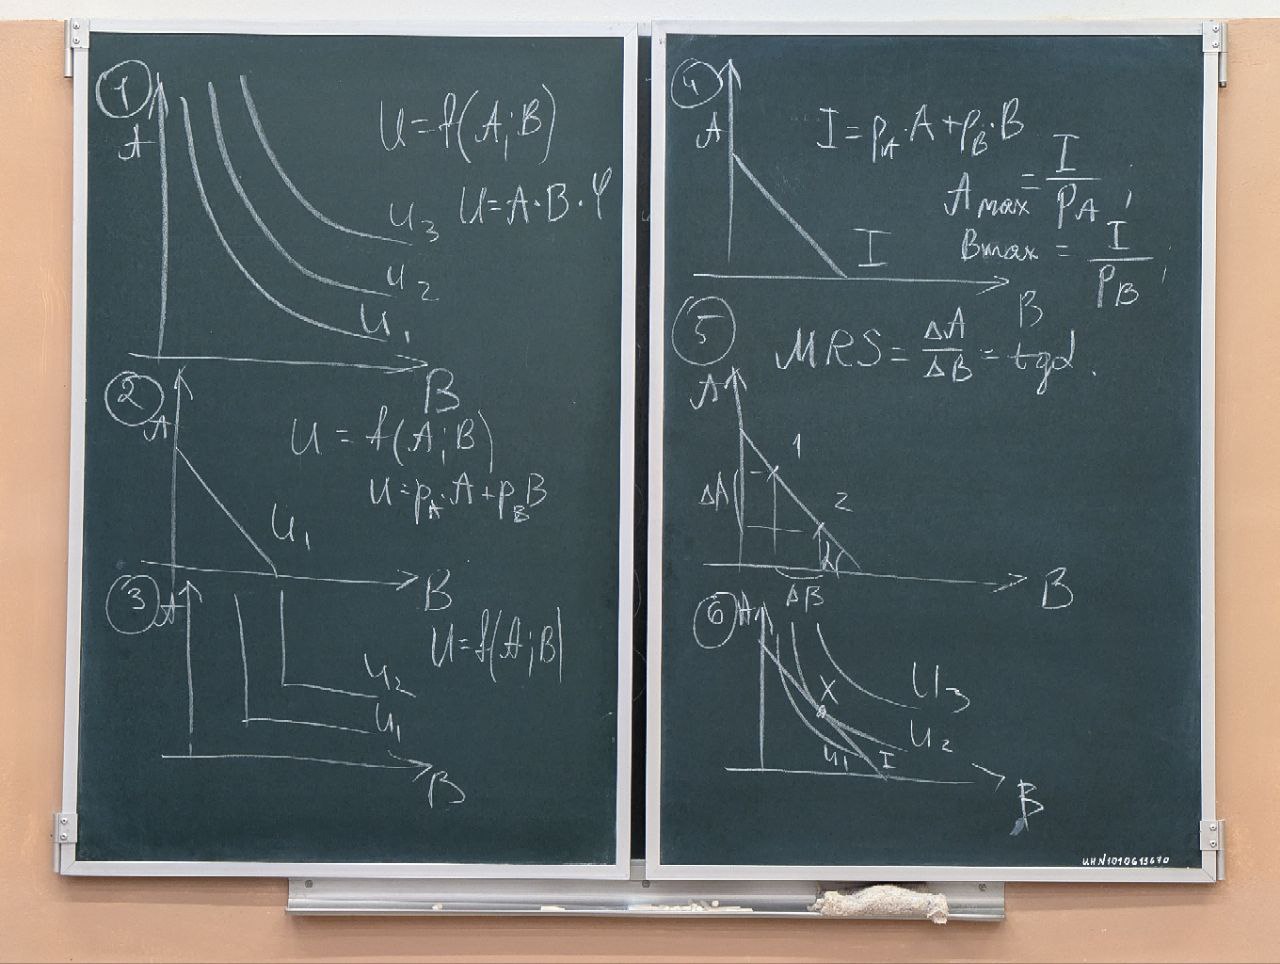 1
A
U=f(A;B)
U=A·B·φ
U3
U2
U1
B
2
A
U = f(A;B)
U=pA·A+pBB
U1
B
3
A
U=f(A;B)
U2
U1
B
4
A
I=pA·A+pB·B
Amax = I/PA;
Bmax = I/PB;
I
B
5
MRS=ΔA/ΔB=tgα.
A
1
ΔA
2
α
ΔB
B
6
A
X
U3
U2
U1
I
B
ИНN1010613670